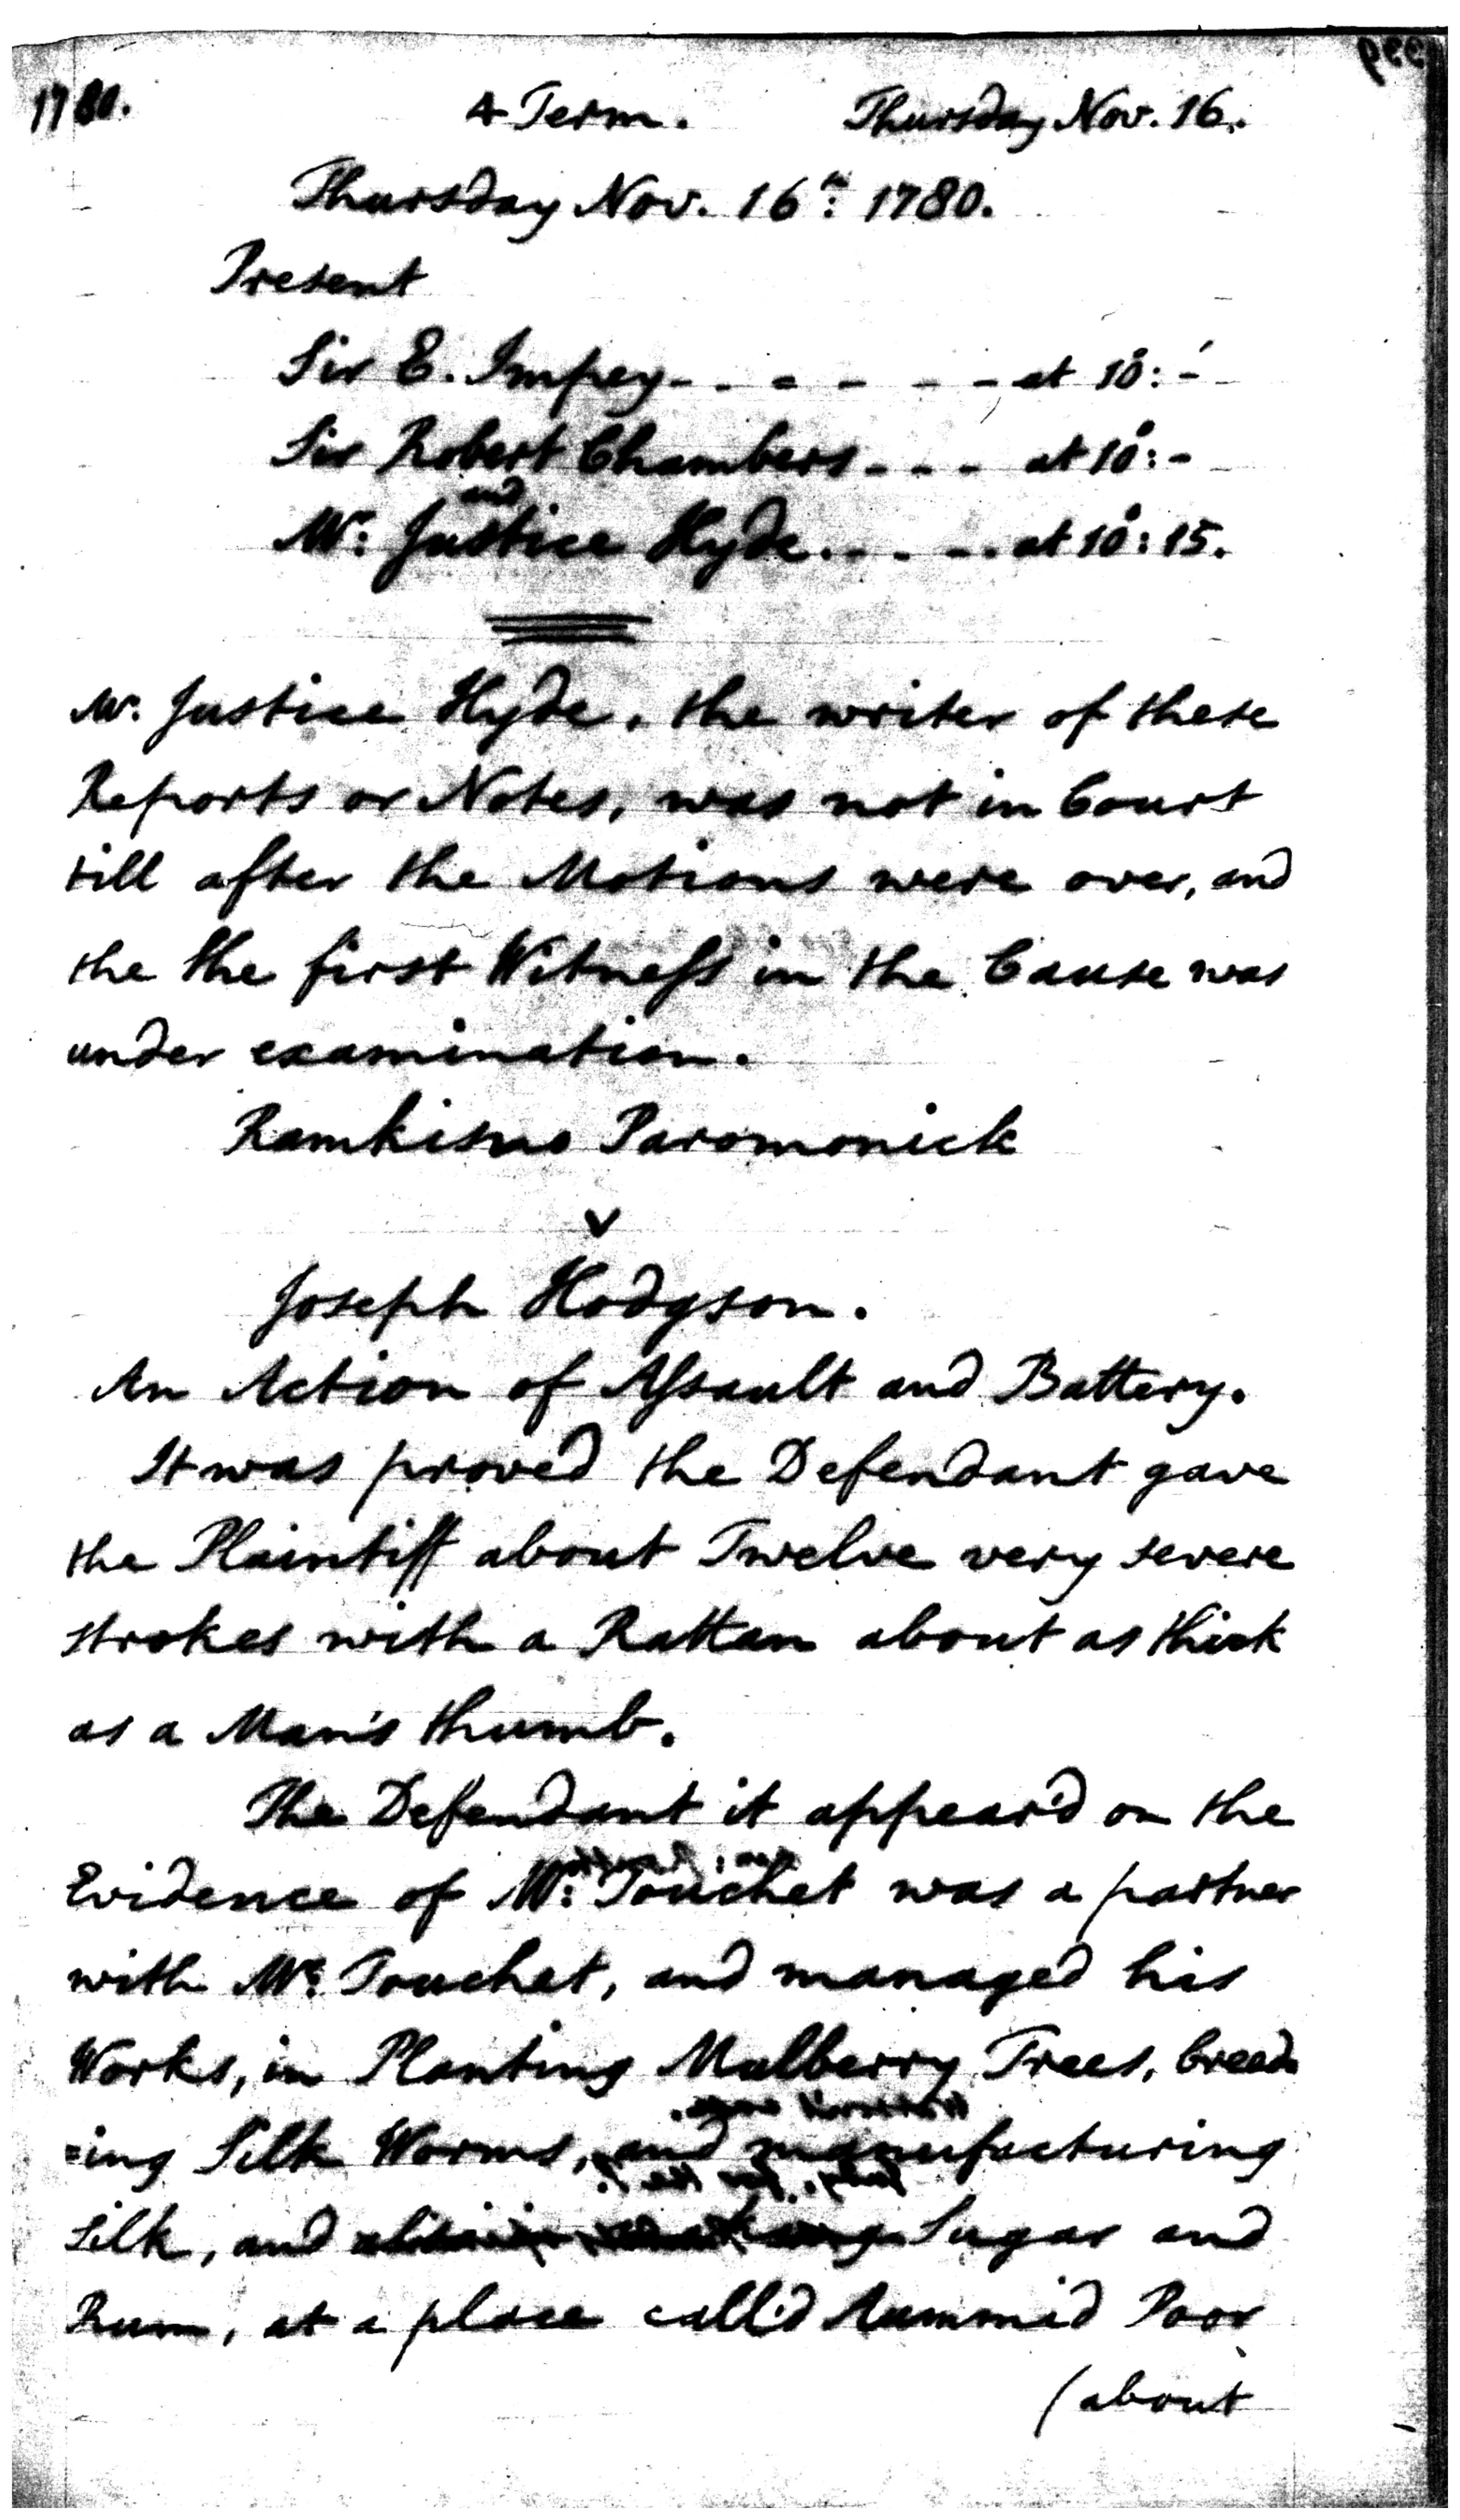 1780. 4 Term. Thursday Nov. 16.
Thursday Nov. 16th: 1780.
Present
Sir E. Impey - - - - - - at 10°: -'
Sir Robert Chambers - - - at 10°: -
and
Mr: Justice Hyde. - - - . at 10°: 15.
Mr. Justice Hyde, the writer of these
Reports or Notes, was not in Court
till after the Motions were over, and
the the first Witness in the Cause was
under examination.
Ramkisno Paromonick
v
Joseph Hodgson.
An Action of Assault and Battery.
It was proved the Defendant gave
the Plaintiff about Twelve very severe
strokes with a Rattan about as thick
as a Man's thumb.
The Defendant it appear'd on the
Evidence of Mr: Touchet was a partner
with Mr: Touchet, and managed his
Works, in Planting Mulberry Trees, breed
=ing Silk Worms, and manufacturing
Silk, and Sugar and
Rum, at a place call'd Aummid Poor
(about